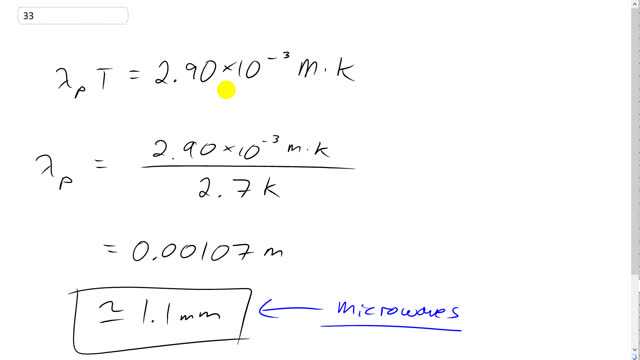 33
λp T = 2.90 × 10⁻³ m·k
λp = 2.90×10⁻³ m·k / 2.7 k
= 0.00107 m
≃ 1.1 mm ← microwaves